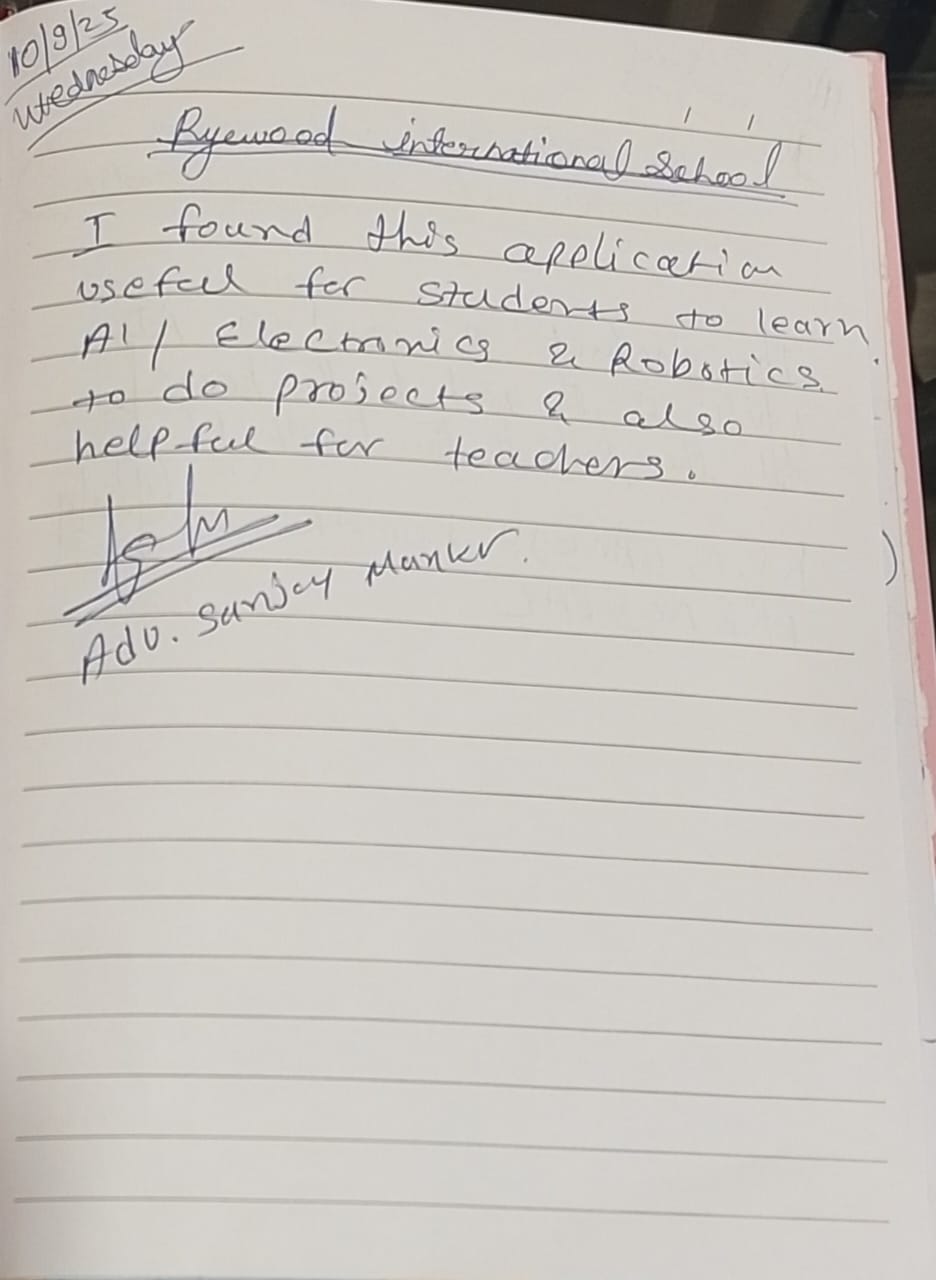 10/9/25
Wednesday
Ryewood international School
I found this application
useful for students to learn
AI / Electronics & Robotics.
to do projects & also
helpful for teachers.
Adv. Sanjay Manker.